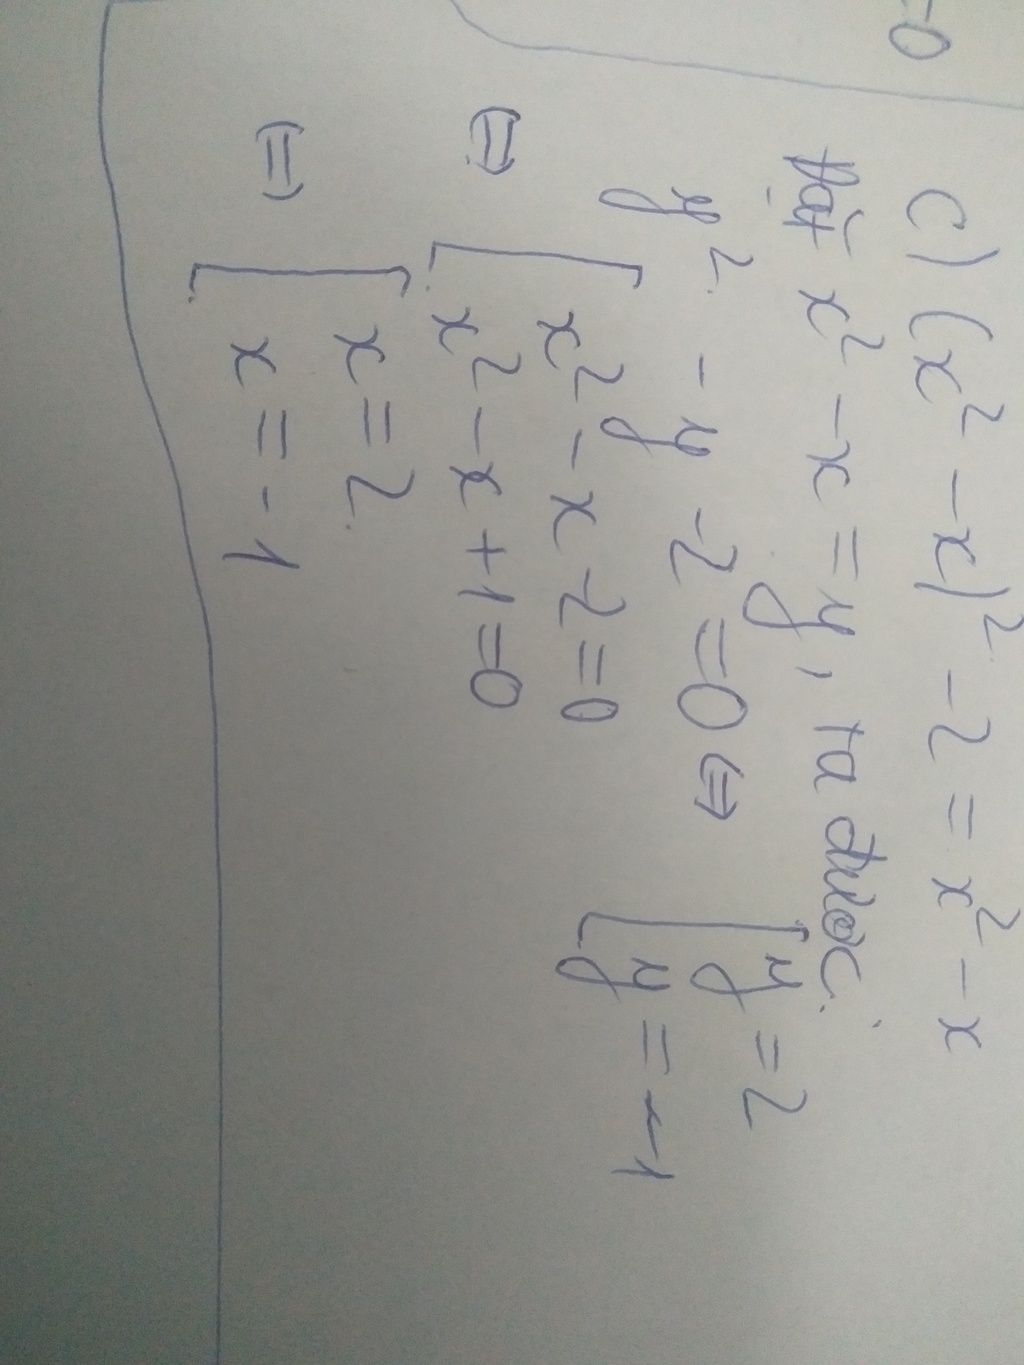 =0
c) (x² - x)² - 2 = x² - x
Đặt x² - x = y, ta được:
y² - y - 2 = 0 ⇔ [ y = 2
y = -1
⇔ [ x² - x - 2 = 0
x² - x + 1 = 0
⇔ [ x = 2
x = -1